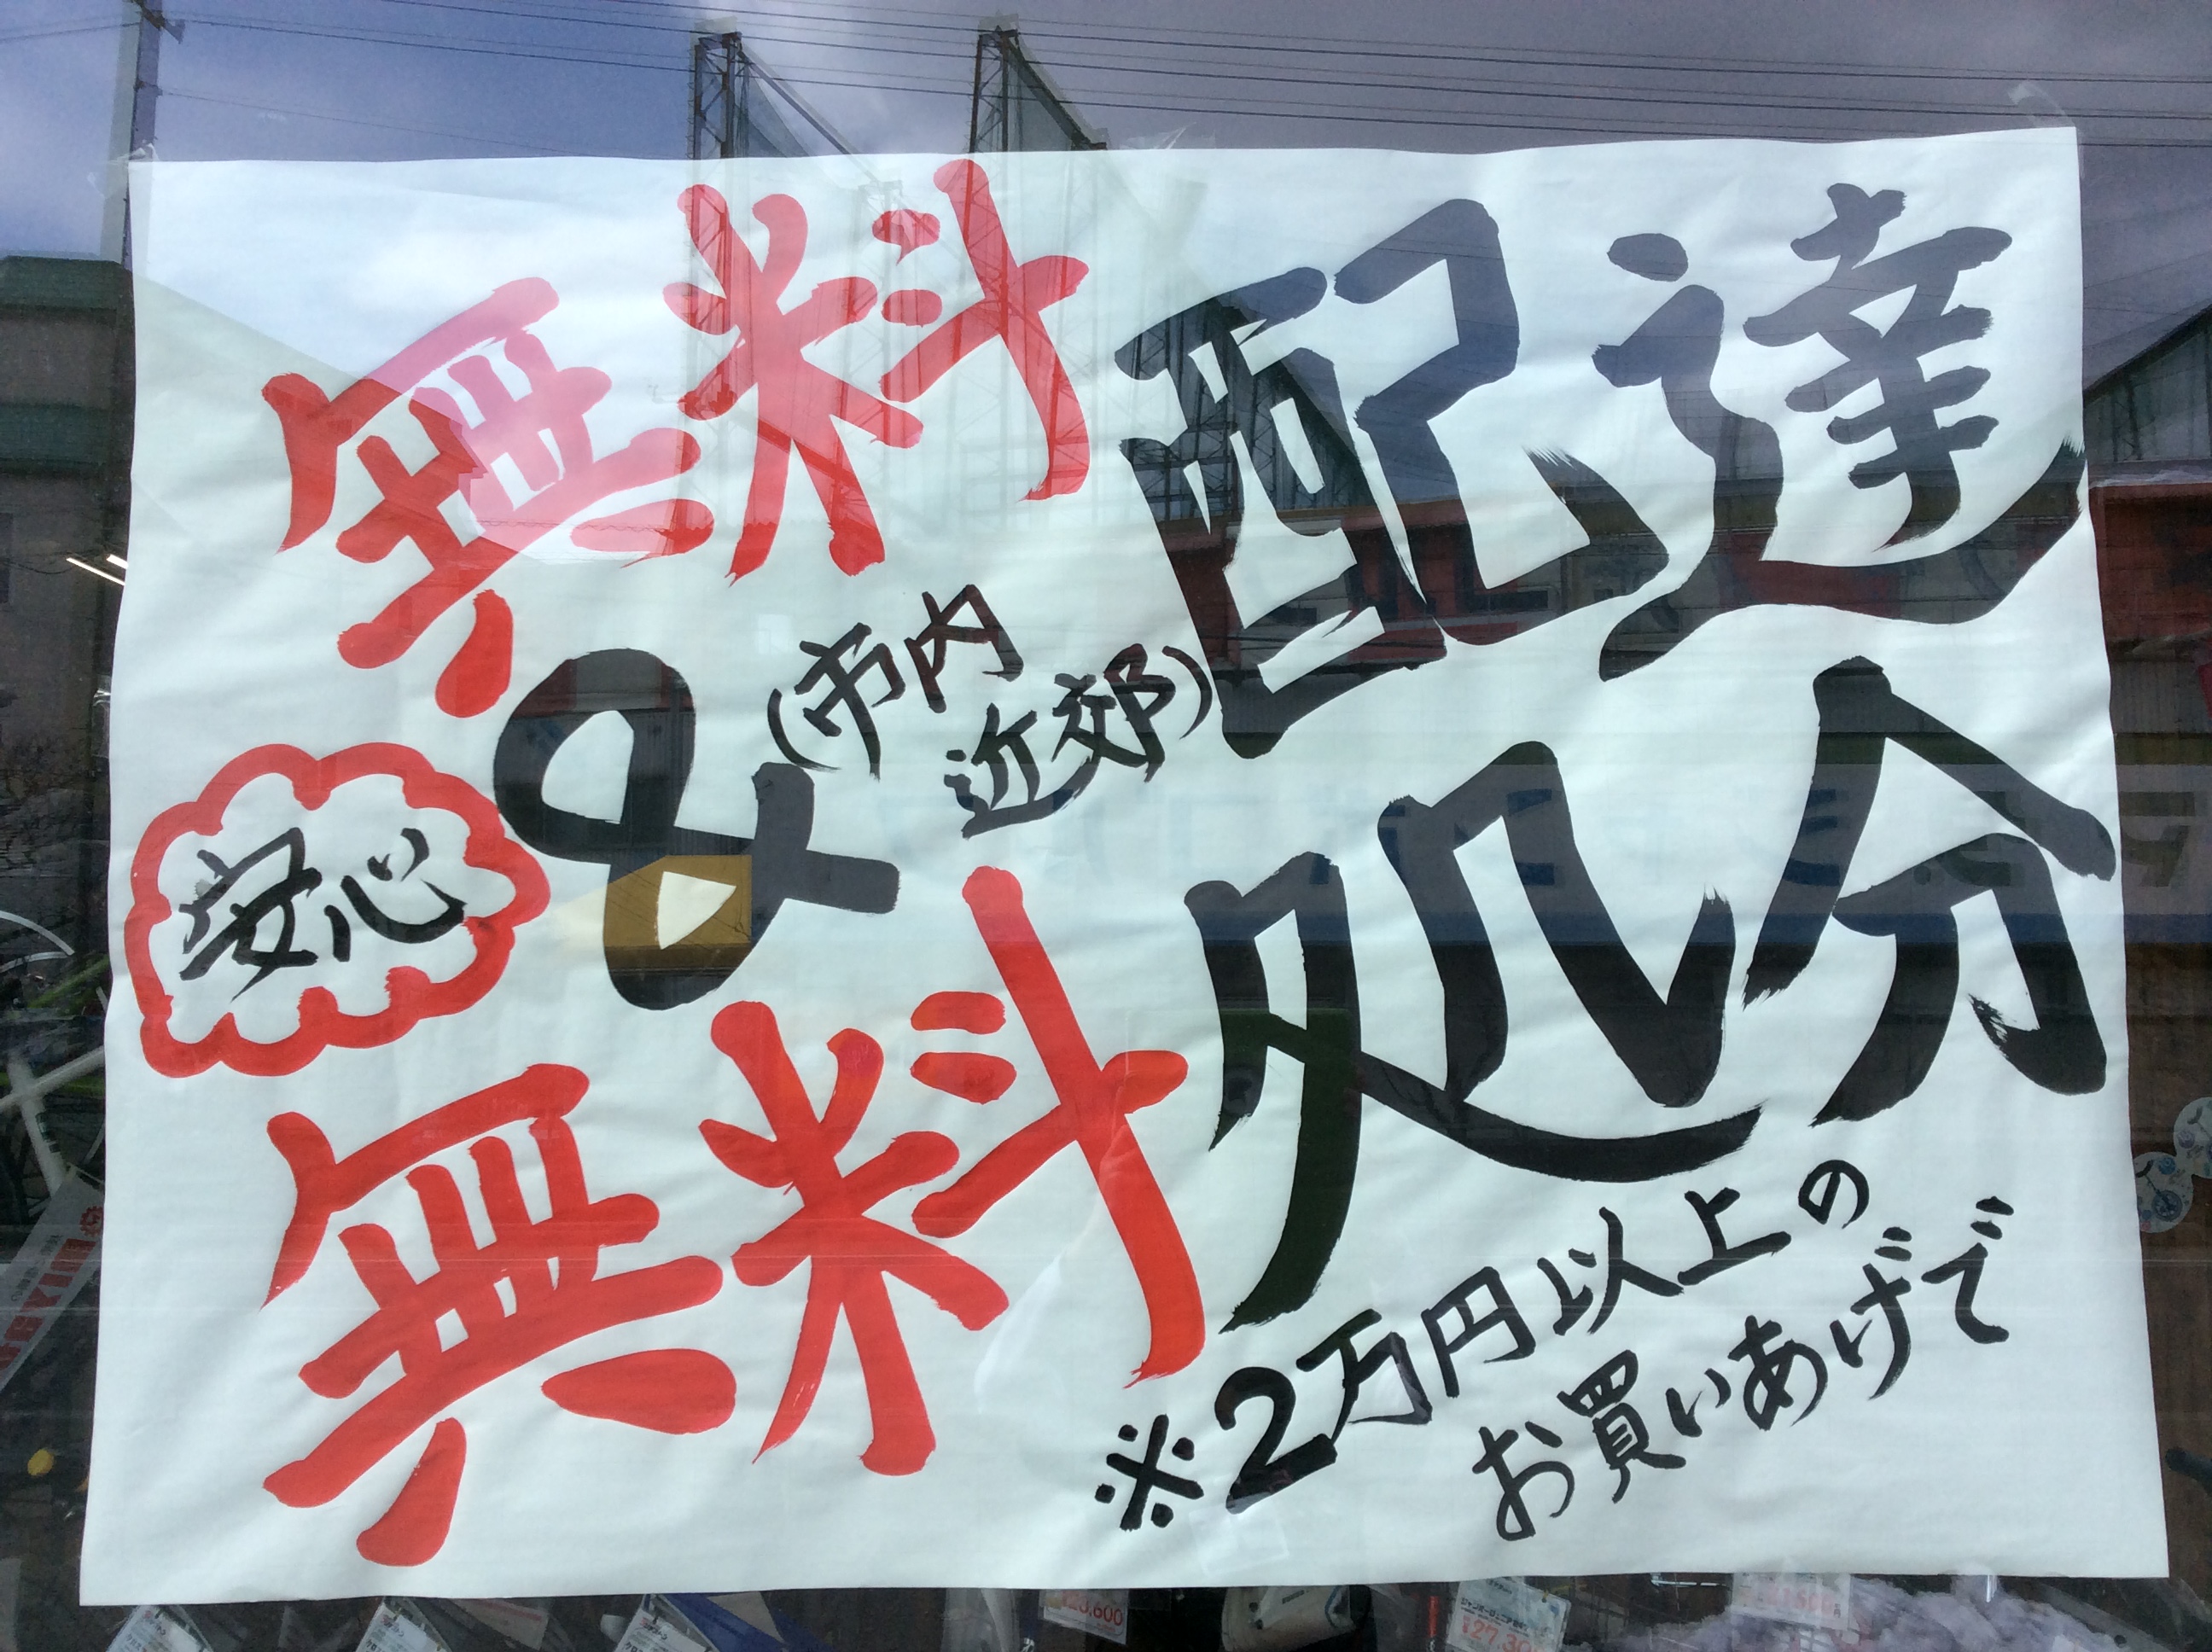 無料配達
(市内
近郊)
&
安心
無料処分
※2万円以上の
お買いあげで